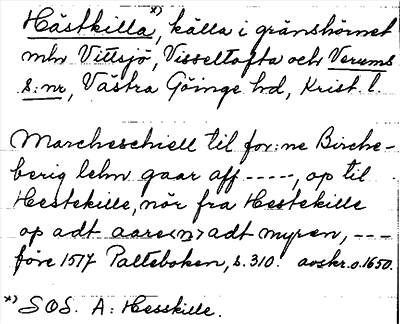 Hästkilla*), källa i gränshörnet
mln Vittsjö, Visseltofta och Verums
s:nr, Västra Göinge hd, Krist. l.
Marcheschiell til for:ne Birche-
berig lehn gaar aff -----, op til
Hestekille, nör fra Hestekille
op adt aare<n> adt myren, ---
före 1517 Palteboken, s. 310. avskr. o. 1650.
*) SOS. A: Hesskille.